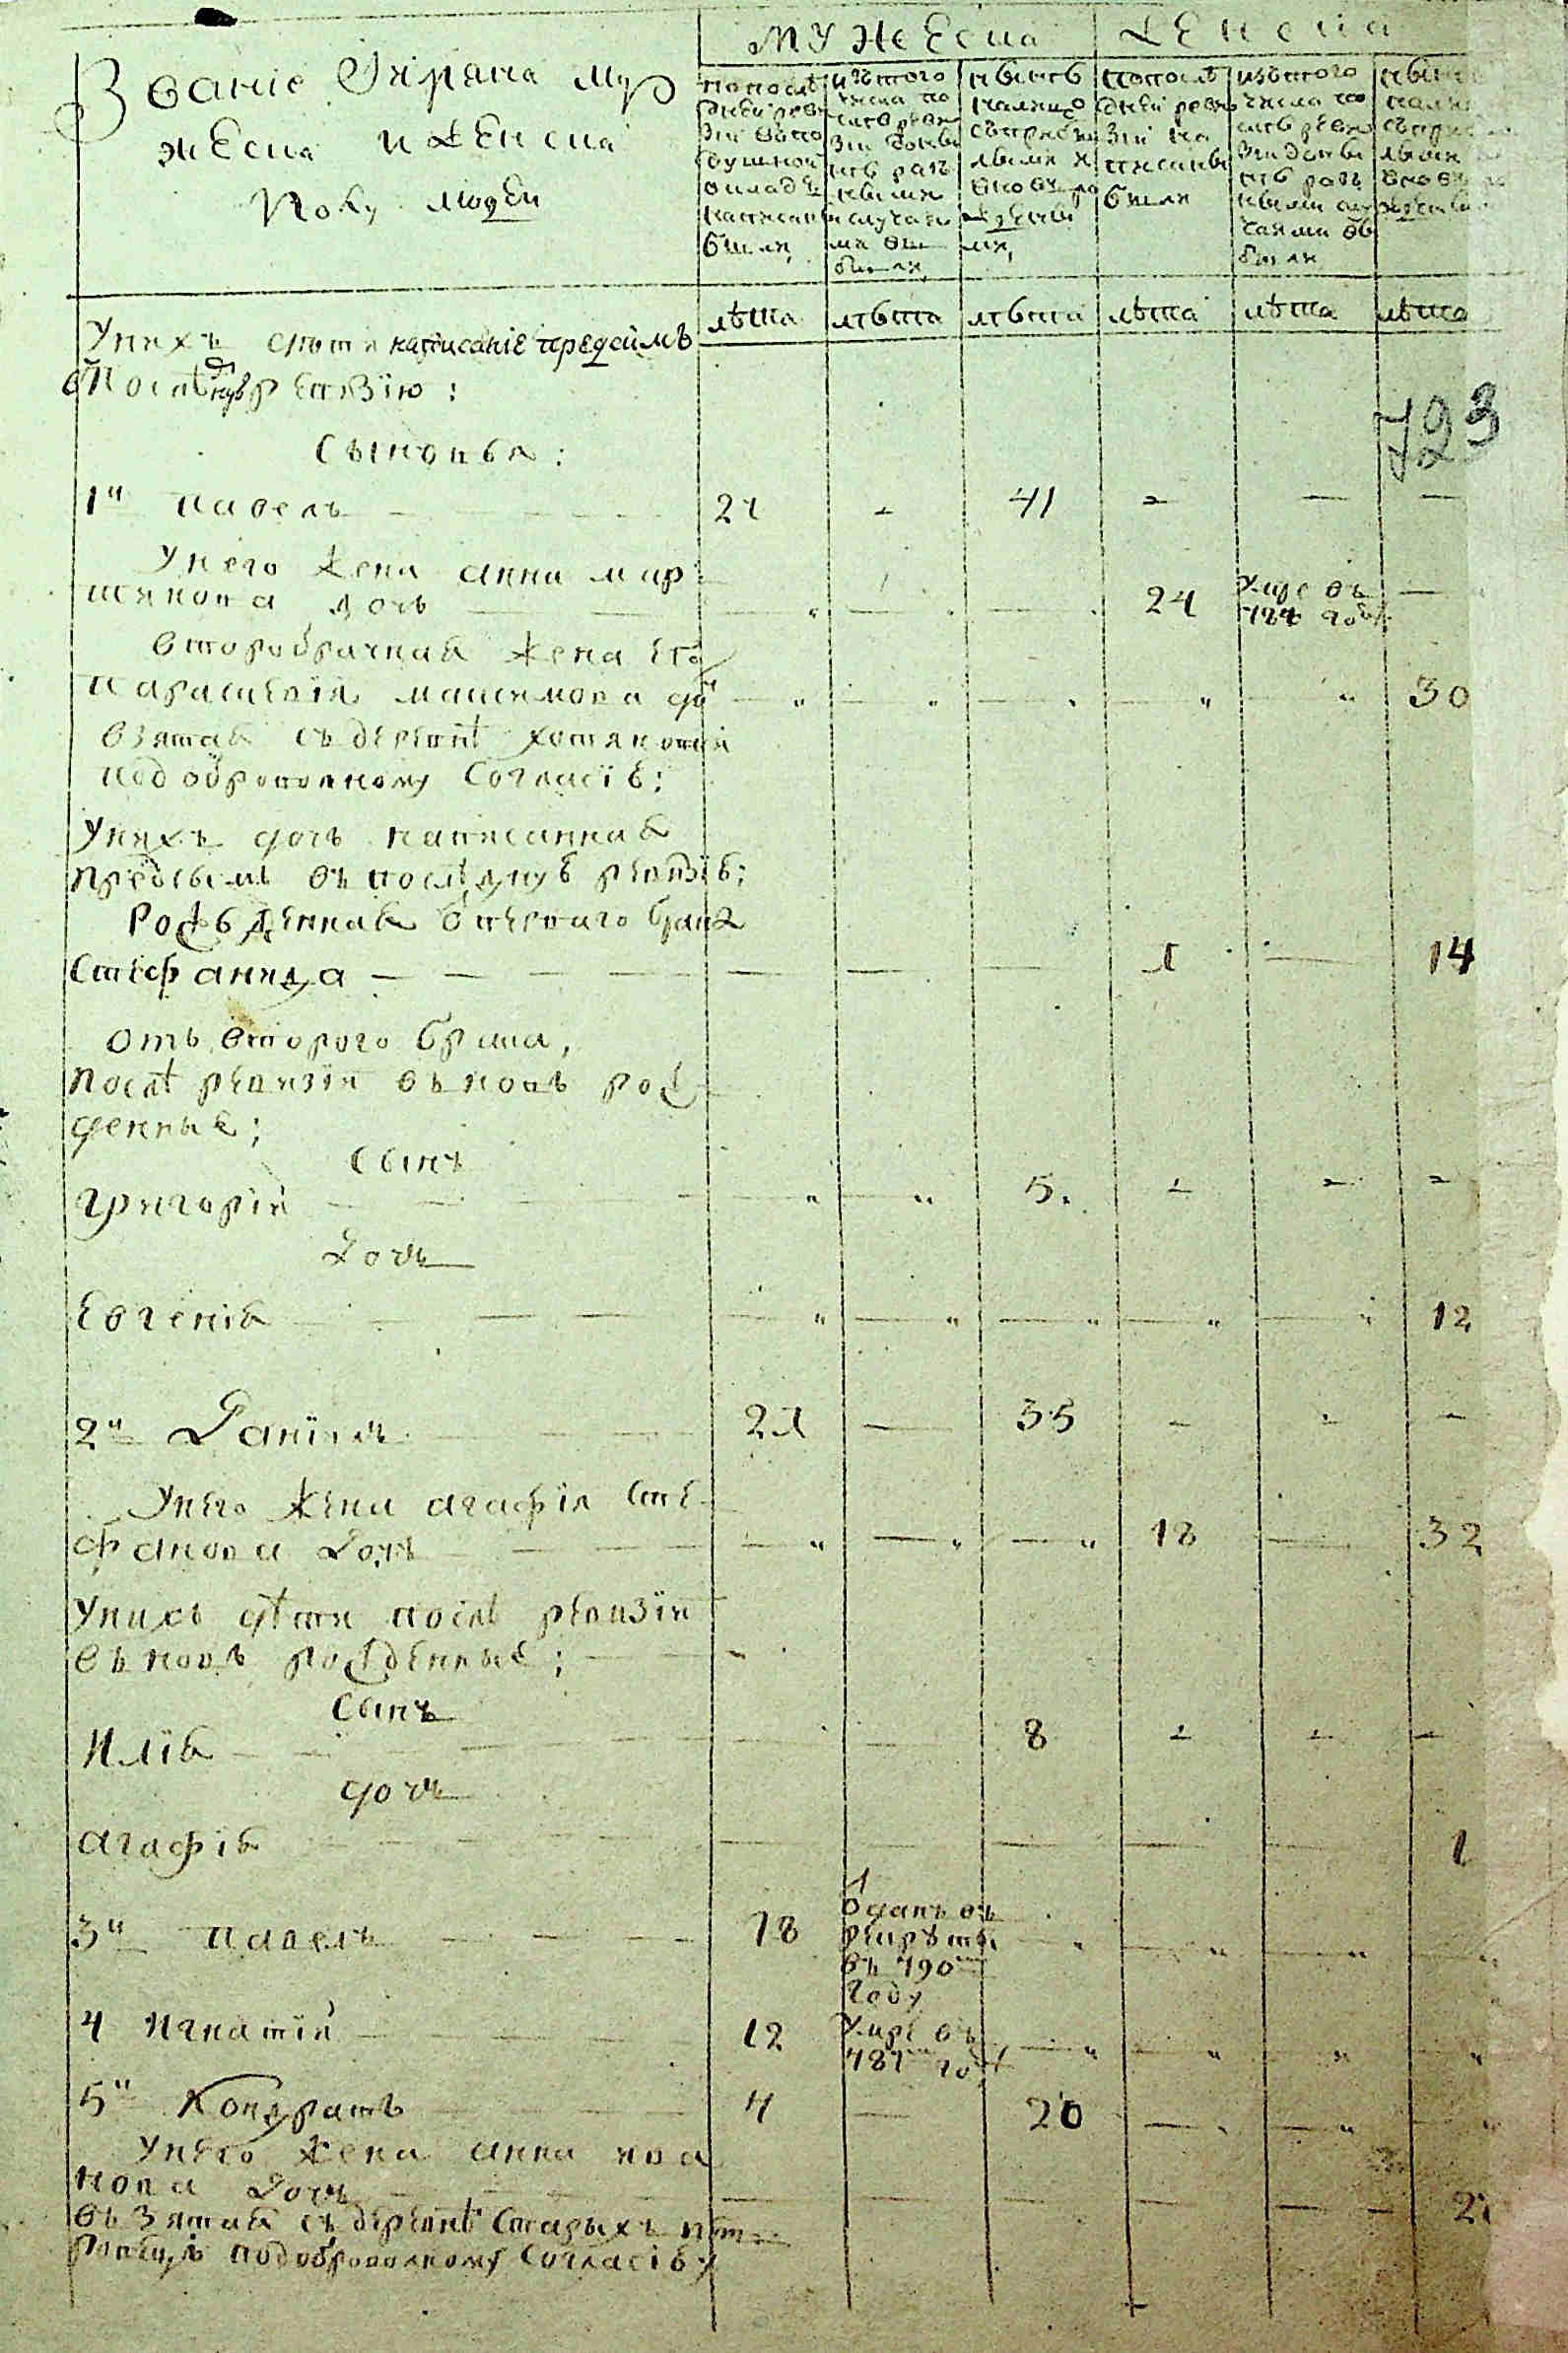 Званіе Екіпажа муж
жеска и женска
полу людей
мужеска женска
по послѣ
дней реви
зіи въ по
душной
окладъ
написаны
были,
изъ того
числа по
слѣ реви
зіи
разными
случаями
выбыли
нынѣ
налицо
съ прибы
лыми и
вновь ро
жденны
ми,
по послѣ
дней реви
зіи на
писаны
были
изъ того
числа по
слѣ реви
зіи
разными
случаями
выбыли
лѣта лѣта лѣта лѣта лѣта лѣта
У нихъ дѣти написаніе предсимъ
въ послѣднуѣ ревизію:
723
Сыновья:
1й Павелъ 27 41
У него жена анна мар
тинова дочь 24 умре въ
784 году
второбрачная жена его
Парасковія максимова дочь 30
взятая съ деревнѣ
по доброволному согласію:
У нихъ дочь написанная
предсимъ въ послѣднуѣ ревизію:
рожденная с перваго брака
Стефанида 1 14
отъ второго брака,
послѣ ревизіи вновь рож
денные;
сынъ
григорій 5.
дочь
Евгенія 12
2й Даніилъ 21 35
У него жена агафія сте
фанова дочь 18 32
У нихъ дѣти послѣ ревизіи
вновь рожденные;
сынъ
Илія 8
дочь
агафія 1
3й павелъ 18 отданъ въ
рекруты
въ 790м
году
4 Игнатій 12 умре въ
787м году
5й Кондратъ 4 20
У него жена анна ива
нова дочь 2
взятая съ деревнѣ Старыхъ
по доброволному согласію